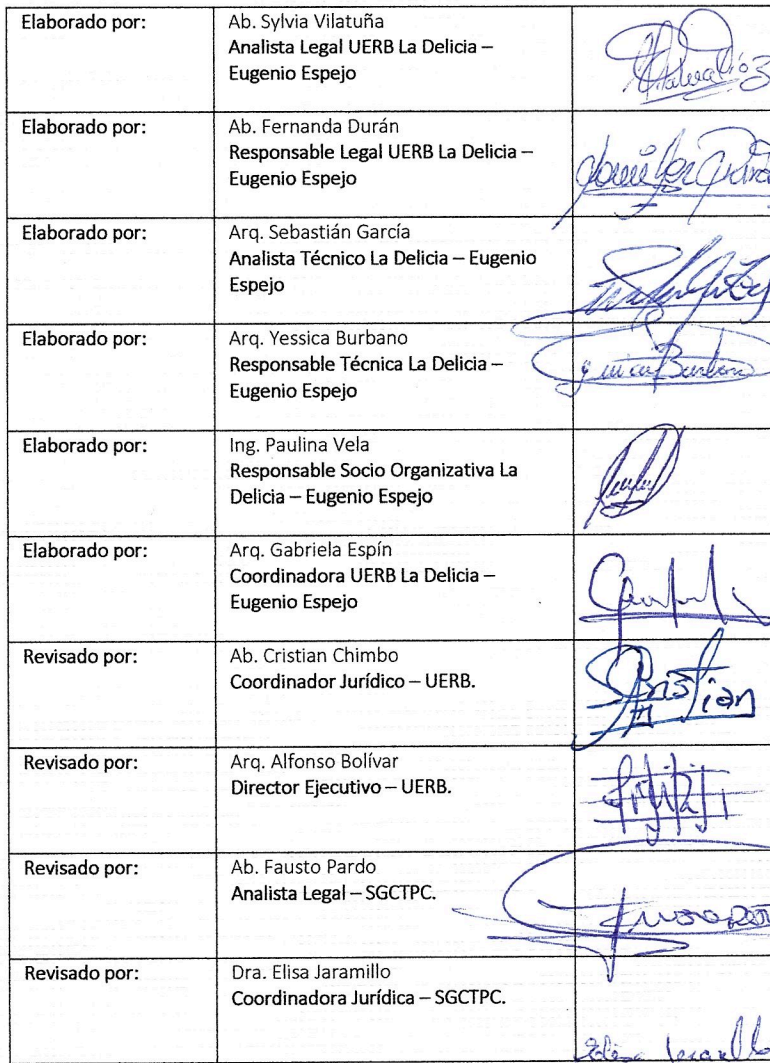 Elaborado por:
Ab. Sylvia Vilatuña
Analista Legal UERB La Delicia –
Eugenio Espejo
Elaborado por:
Ab. Fernanda Durán
Responsable Legal UERB La Delicia –
Eugenio Espejo
Elaborado por:
Arq. Sebastián García
Analista Técnico La Delicia – Eugenio
Espejo
Elaborado por:
Arq. Yessica Burbano
Responsable Técnica La Delicia –
Eugenio Espejo
Elaborado por:
Ing. Paulina Vela
Responsable Socio Organizativa La
Delicia – Eugenio Espejo
Elaborado por:
Arq. Gabriela Espín
Coordinadora UERB La Delicia –
Eugenio Espejo
Revisado por:
Ab. Cristian Chimbo
Coordinador Jurídico – UERB.
Cristian
Revisado por:
Arq. Alfonso Bolívar
Director Ejecutivo – UERB.
Revisado por:
Ab. Fausto Pardo
Analista Legal – SGCTPC.
Revisado por:
Dra. Elisa Jaramillo
Coordinadora Jurídica – SGCTPC.